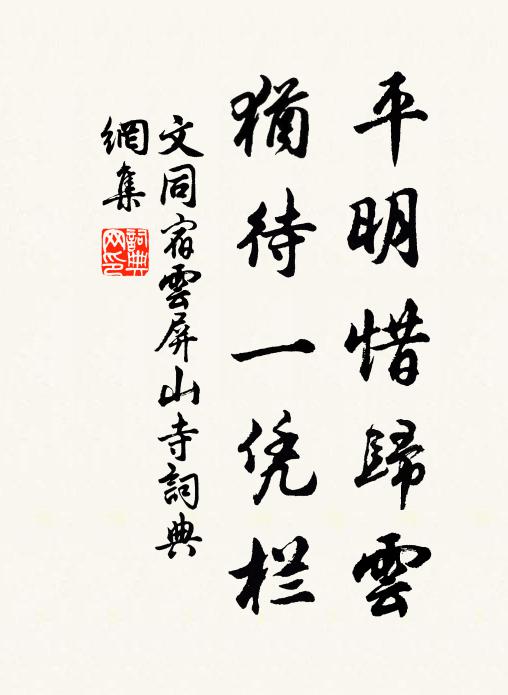 平明惜歸雲
猶待一凭栏
文同宿雲屏山寺詞典
網集
詞典
网印